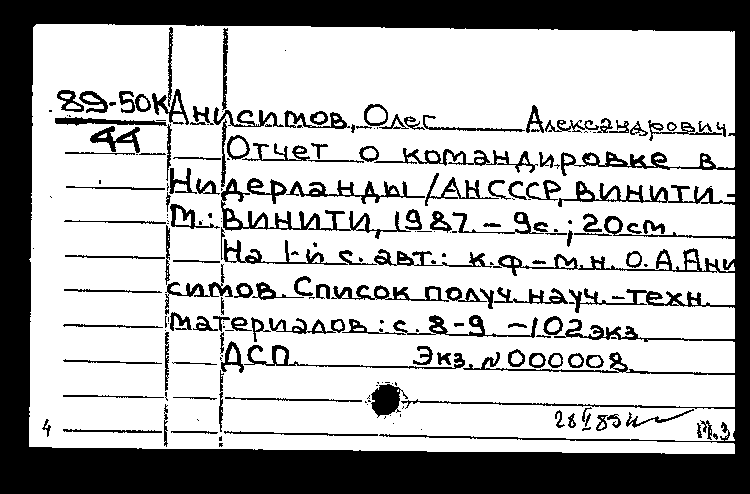 89-50К Анисимов, Олег Александрович
44 Отчет о командировке в
Нидерланды / АН СССР, ВИНИТИ –
М.: ВИНИТИ, 1987. – 9с.; 20см.
На 1-й с. авт.: к.ф.-м.н. О.А. Ани
симов. Список получ. науч.-техн.
материалов: с. 8-9 – 102 экз.
ДСП. Экз. N 000008.
4